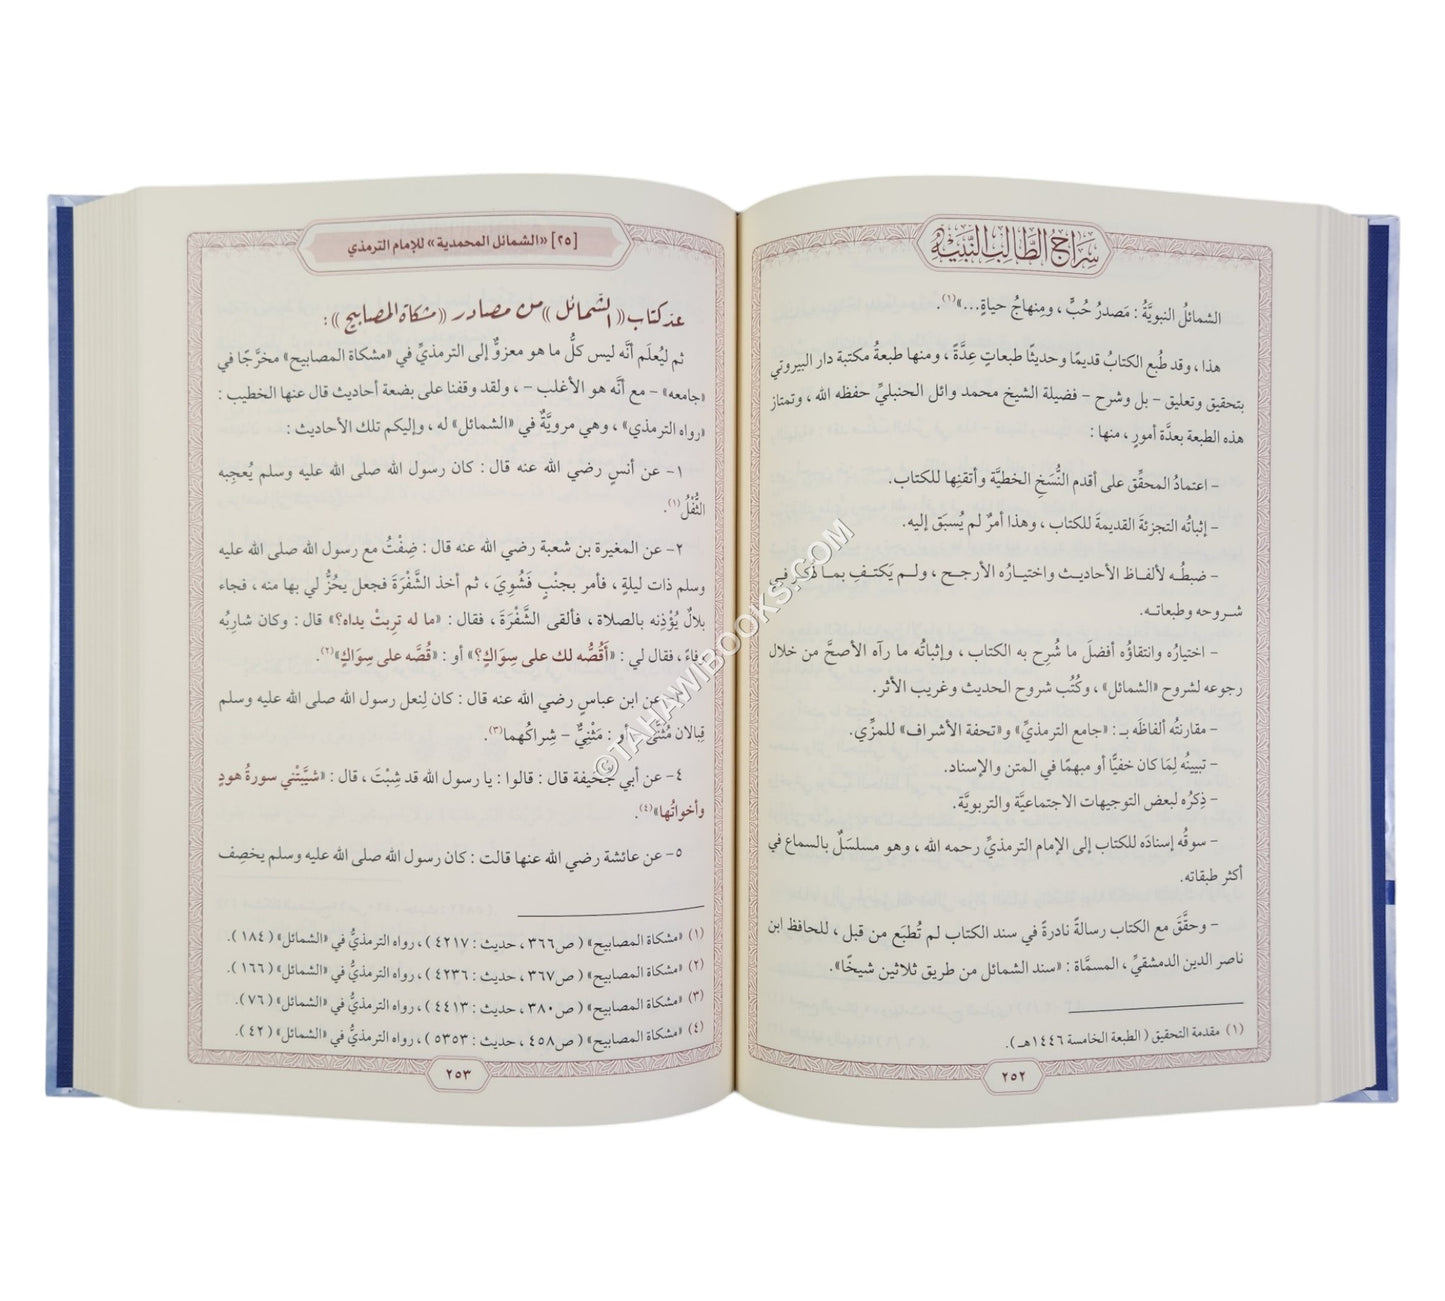 سِرَاجُ الطَّالِبِ النَّبِيْهِ
الشمائلُ النبويَّةُ : مَصدرُ حُبٍّ ، ومِنهاجُ حياةٍ...»(١).
هذا ، وقد طُبع الكتابُ قديمًا وحديثًا طبعاتٍ عِدَّةً ، ومنها طبعةُ مكتبة دار البيروتي
بتحقيق وتعليق – بل وشرح – فضيلة الشيخ محمد وائل الحنبليِّ حفظه الله ، وتمتاز
هذه الطبعة بعدَّة أمورٍ ، منها :
– اعتمادُ المحقِّق على أقدم النُّسَخِ الخطيَّة وأتقنِها للكتاب.
– إثباتُه التجزئةَ القديمةَ للكتاب ، وهذا أمرٌ لم يُسبَق إليه.
– ضبطُه لألفاظ الأحاديث واختيارُه الأرجح ، ولم يَكتفِ بما ذُكر في
شروحه وطبعاته.
– اختيارُه وانتقاؤُه أفضلَ ما شُرح به الكتاب ، وإثباتُه ما رآه الأصحَّ من خلال
رجوعه لشروح «الشمائل» ، وكُتُب شروح الحديث وغريب الأثر.
– مقارنتُه ألفاظَه بـ : «جامع الترمذيِّ» و«تحفة الأشراف» للمزِّي.
– تبيينُه لِمَا كان خفيًّا أو مبهمًا في المتن والإسناد.
– ذِكرُه لبعض التوجيهات الاجتماعيَّة والتربويَّة.
– سوقُه إسنادَه للكتاب إلى الإمام الترمذيِّ رحمه الله ، وهو مسلسَلٌ بالسماع في
أكثر طبقاته.
– وحقَّقَ مع الكتاب رسالةً نادرةً في سند الكتاب لم تُطبَع من قبل ، للحافظ ابن
ناصر الدين الدمشقيِّ ، المسمَّاة : «سند الشمائل من طريق ثلاثين شيخًا».
(١) مقدمة التحقيق ( الطبعة الخامسة ١٤٤٦هـ ).
٢٥٢
[٢٥] «الشمائل المحمدية» للإمام الترمذي
عد كتاب «الشمائل» من مصادر «مشكاة المصابيح» :
ثم ليُعلَم أنَّه ليس كلُّ ما هو معزوٌّ إلى الترمذيِّ في «مشكاة المصابيح» مخرَّجًا في
«جامعه» – مع أنَّه هو الأغلب – ، ولقد وقفنا على بضعة أحاديث قال عنها الخطيب :
«رواه الترمذي» ، وهي مرويَّةٌ في «الشمائل» له ، وإليكم تلك الأحاديث :
١– عن أنسٍ رضي الله عنه قال : كان رسول الله صلى الله عليه وسلم يُعجِبه
الثُّفْلُ(١).
٢– عن المغيرة بن شعبة رضي الله عنه قال : ضِفْتُ مع رسول الله صلى الله عليه
وسلم ذات ليلةٍ ، فأمر بجنْبٍ فَشُوِيَ ، ثم أخذ الشَّفْرَةَ فجعل يحُزُّ لي بها منه ، فجاء
بلالٌ يُؤْذِنه بالصلاة ، فألقى الشَّفْرَةَ ، فقال : «ما له تربتْ يداه؟» قال : وكان شاربُه
وفاءً ، فقال لي : «أَقُصُّه لك على سِوَاكٍ؟» أو : «قُصَّه على سِوَاكٍ»(٢).
٣– عن ابن عباسٍ رضي الله عنه قال : كان لِنعل رسول الله صلى الله عليه وسلم
قِبالان مُثنًّى – أو : مَثْنِيٌّ – شِراكُهما(٣).
٤– عن أبي جُحَيفة قال : قالوا : يا رسول الله قد شِبْتَ ، قال : «شيَّبَتْني سورةُ هودٍ
وأخواتُها»(٤).
٥– عن عائشة رضي الله عنها قالت : كان رسول الله صلى الله عليه وسلم يخصِف
(١) «مشكاة المصابيح» ( ص٣٦٦ ، حديث : ٤٢١٧ ) ، رواه الترمذيُّ في «الشمائل» ( ١٨٤ ).
(٢) «مشكاة المصابيح» ( ص٣٦٧ ، حديث : ٤٢٣٦ ) ، رواه الترمذيُّ في «الشمائل» ( ١٦٦ ).
(٣) «مشكاة المصابيح» ( ص٣٨٠ ، حديث : ٤٤١٣ ) ، رواه الترمذيُّ في «الشمائل» ( ٧٦ ).
(٤) «مشكاة المصابيح» ( ص٤٥٨ ، حديث : ٥٣٥٣ ) ، رواه الترمذيُّ في «الشمائل» ( ٤٢ ).
٢٥٣
©TAHAWIBOOKS.COM